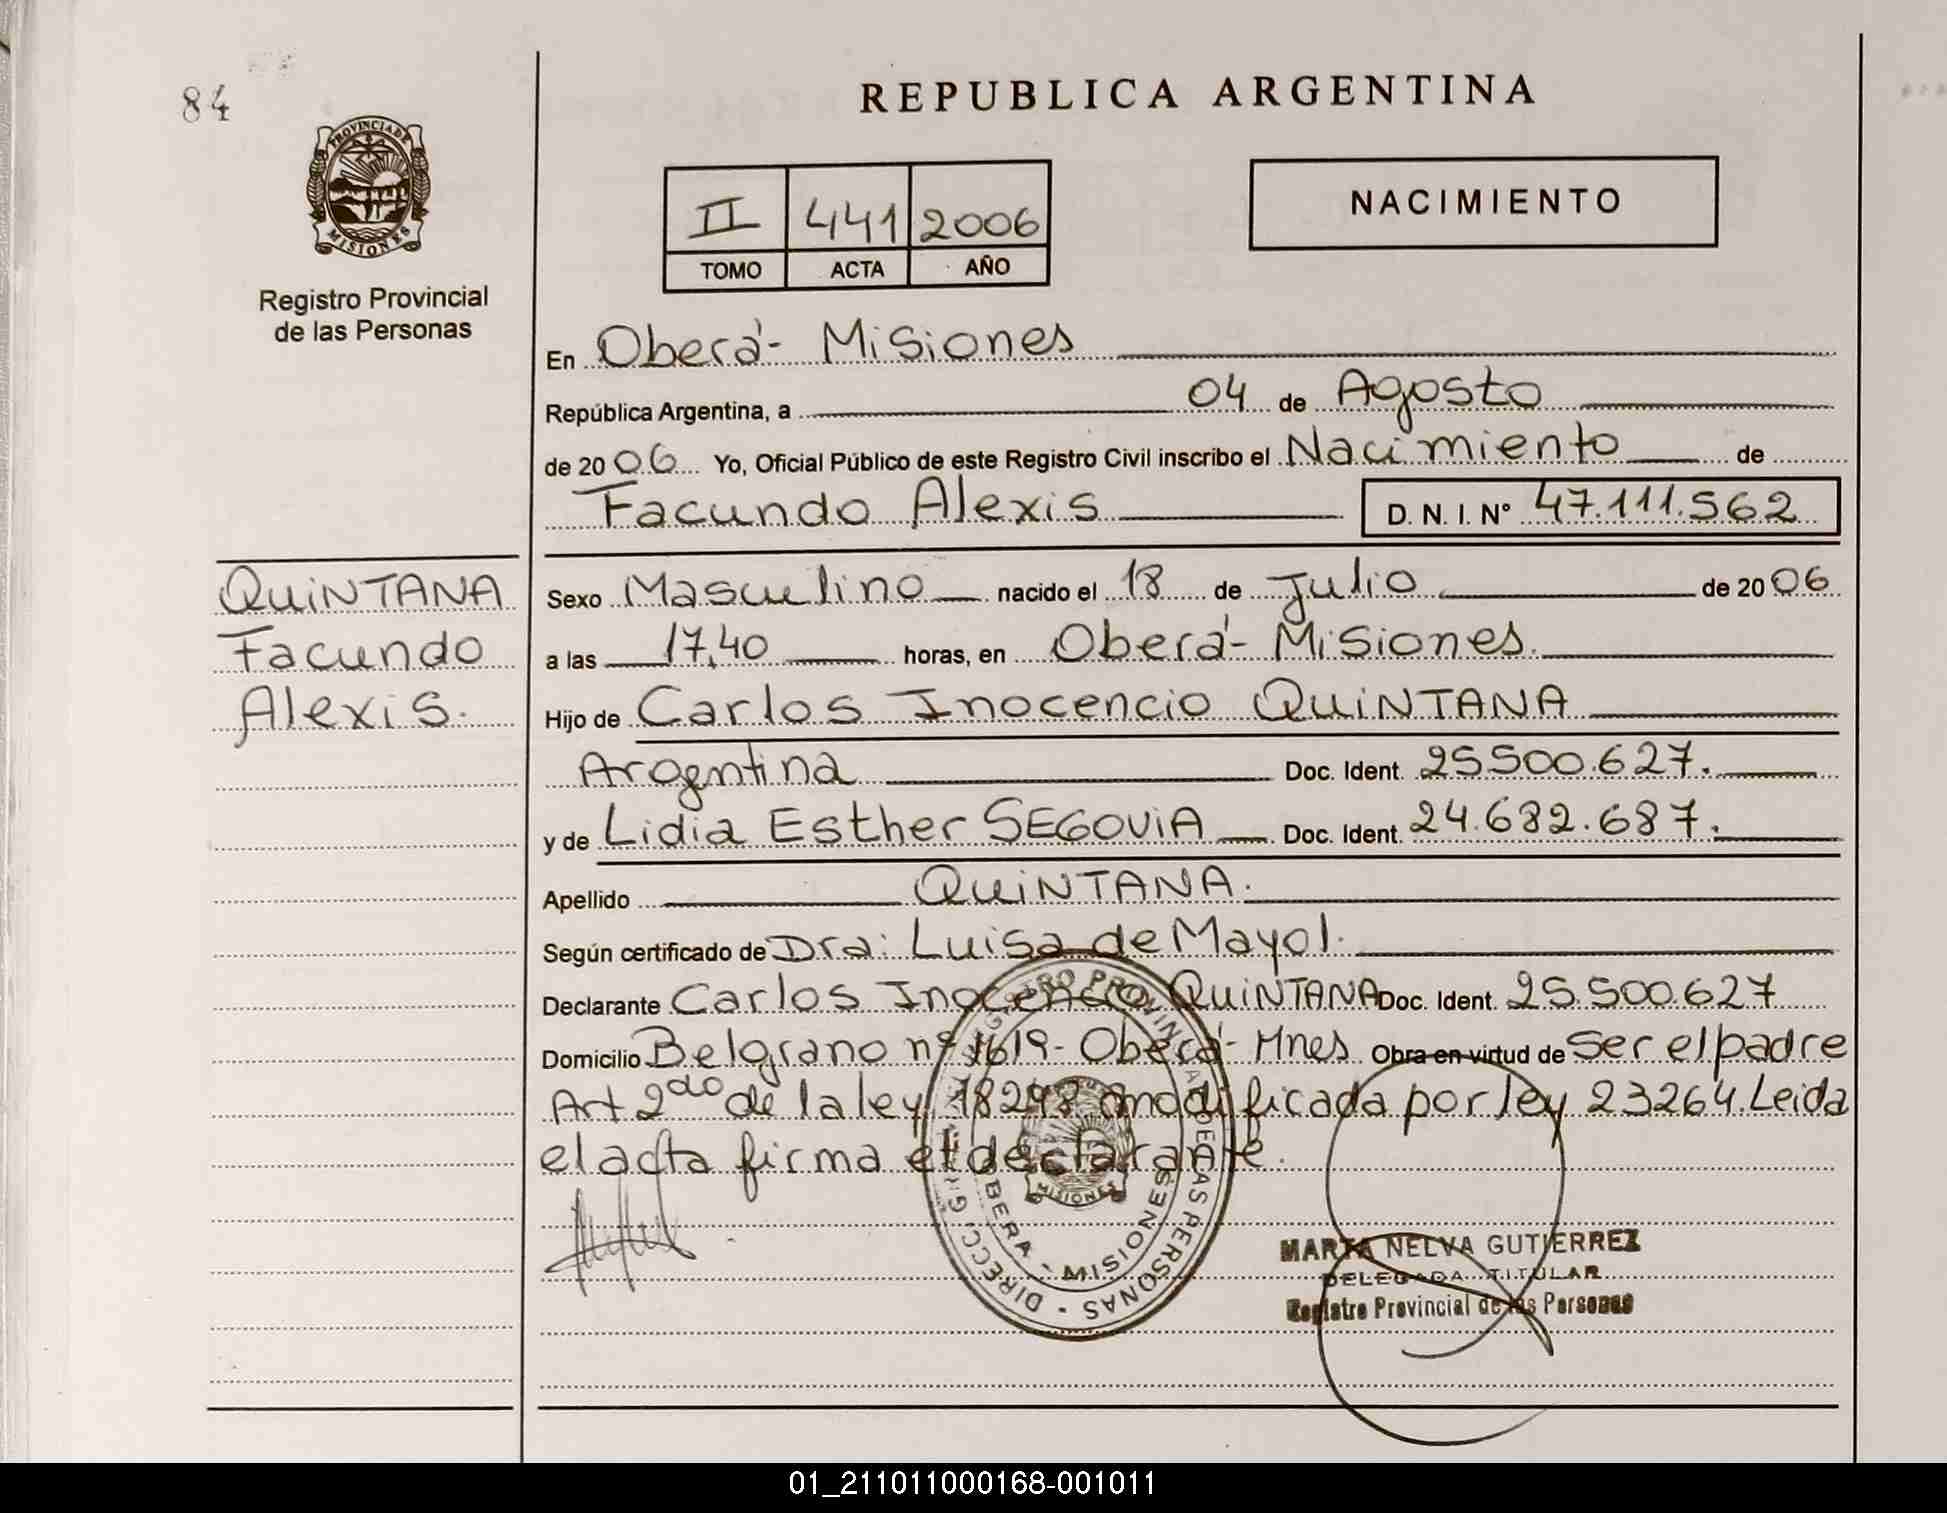 84
PROVINCIA DE
MISIONES
Registro Provincial
de las Personas
REPUBLICA ARGENTINA
II 441 2006
TOMO ACTA AÑO
NACIMIENTO
En Oberá - Misiones
República Argentina, a 04 de Agosto
de 2006 Yo, Oficial Público de este Registro Civil inscribo el Nacimiento de
Facundo Alexis D. N. I. N° 47.111.562
QUINTANA
Facundo
Alexis.
Sexo Masculino nacido el 18 de Julio de 2006
a las 17,40 horas, en Oberá - Misiones.
Hijo de Carlos Inocencio QUINTANA
Argentina Doc. Ident. 25.500.627.
y de Lidia Esther SEGOVIA Doc. Ident. 24.682.687.
Apellido QUINTANA.
Según certificado de Dra: Luisa de Mayol.
Declarante Carlos Inocencio QUINTANA Doc. Ident. 25.500.627
Domicilio Belgrano nº 1619 - Oberá - Mnes. Obra en virtud de Ser el padre
Art 2do de la ley 18248 modificada por ley 23264. Leida
el acta firma el declarante.
REGISTRO PROVINCIAL DE LAS PERSONAS - DIRECC. GRAL.
MISIONES
OBERA - MISIONES
MARTA NELVA GUTIERREZ
DELEGADA TITULAR
Registro Provincial de las Personas
01_211011000168-001011